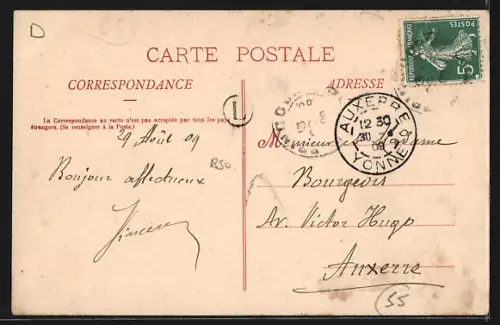 D
CARTE POSTALE
CORRESPONDANCE
ADRESSE
La Correspondance au recto n'est pas acceptée par tous les pays
étrangers. (Se renseigner à la Poste.)
29 Août 09
Bonjour affectueux
Vincent
R50.
L
POSTES
5c
AUXERRE
12 30
30
09
YONNE
Monsieur et Madame
Bourgeois
Av. Victor Hugo
Auxerre
55